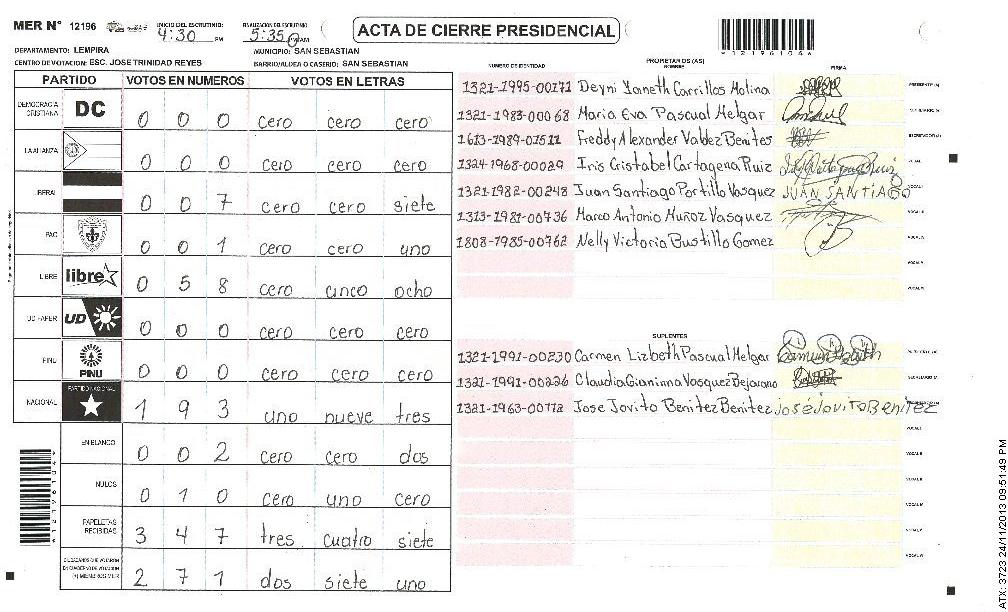 MER N° 12196 INICIO DEL ESCRUTINIO 4:30 PM FINALIZACION DEL ESCRUTINIO 5:35 PM
ACTA DE CIERRE PRESIDENCIAL
DEPARTAMENTO: LEMPIRA MUNICIPIO: SAN SEBASTIAN
CENTRO DE VOTACION: ESC. JOSE TRINIDAD REYES BARRIO/ALDEA O CASERIO: SAN SEBASTIAN
PARTIDO VOTOS EN NUMEROS VOTOS EN LETRAS
DEMOCRACIA CRISTIANA DC 0 0 0 cero cero cero
LA ALIANZA 0 0 0 cero cero cero
0 0 7 cero cero siete
PAC 0 0 1 cero cero uno
LIBRE libre 0 5 8 cero cinco ocho
UD FAPER UD 0 0 0 cero cero cero
PINU PINU 0 0 0 cero cero cero
NACIONAL PARTIDO NACIONAL 1 9 3 uno nueve tres
EN BLANCO 0 0 2 cero cero dos
NULOS 0 1 0 cero uno cero
PAPELETAS RECIBIDAS 3 4 7 tres cuatro siete
CIUDADANOS QUE VOTARON EN CUADERNO DE VOTACION (+) MIEMBROS MER 2 7 1 dos siete uno
PROPIETARIOS (AS)
NUMERO DE IDENTIDAD NOMBRE FIRMA
1321-1995-00171 Deyni Yaneth Carrillos Molina
1321-1983-00068 Maria Eva Pascual Melgar
1613-1989-01511 Freddy Alexander Valdez Benites
1324-1968-00029 Iris Cristabel Cartagena Ruiz
1321-1982-00248 Juan Santiago Portillo Vasquez JUAN SANTIAGO
1313-1981-00736 Marco Antonio Muñoz Vasquez
1808-1985-00762 Nelly Victoria Bustillo Gomez
SUPLENTES
1321-1991-00230 Carmen Lizbeth Pascual Melgar
1321-1991-00226 Claudia Gianinna Vasquez Bejarano
1321-1963-00172 Jose Jovito Benitez Benitez José JoviTo BeniTez
ATX: 3723 24/11/2013 09:51:49 PM